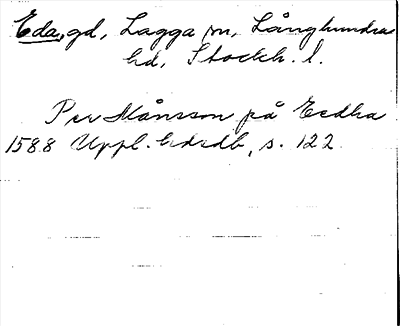 Eda, gd, Lagga sn, Långhundra
hd, Stockh. l.
Per Månsson på Eedha
1588 Uppl. hdrdb, s. 122